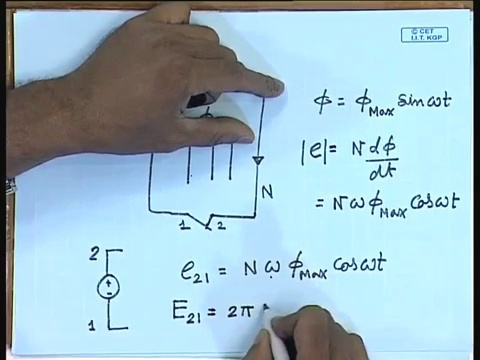 © CET
I.I.T. KGP
φ = φ_Max sin ωt
|e| = N dφ/dt
= N ω φ_Max cos ωt
N
1 2
2
e₂₁ = N ω φ_Max cos ωt
+
-
1
E₂₁ = 2π